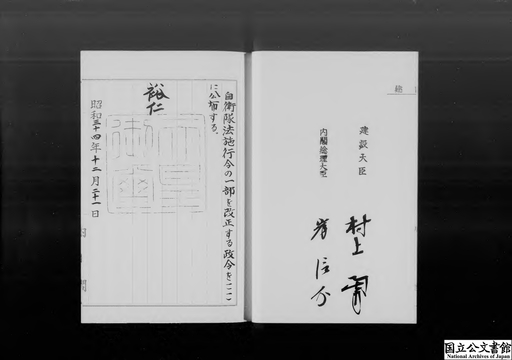 自衛隊法施行令の一部を改正する政令をここ
に公布する。
裕仁
天皇
御璽
昭和三十四年十二月二十一日
建設大臣
村上勇
内閣総理大臣
岸信介
国立公文書館
National Archives of Japan